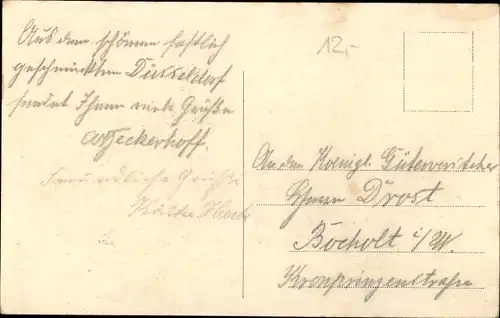 Aus dem schönen festlich
geschmückten Düsseldorf
sendet Ihnen viele Grüße
Heckerhoff.
Freundliche Grüße
Käthe
12,-
An den Königl. Gütervorsteher
Herrn Drost
Bocholt i/W.
Kronprinzenstraße